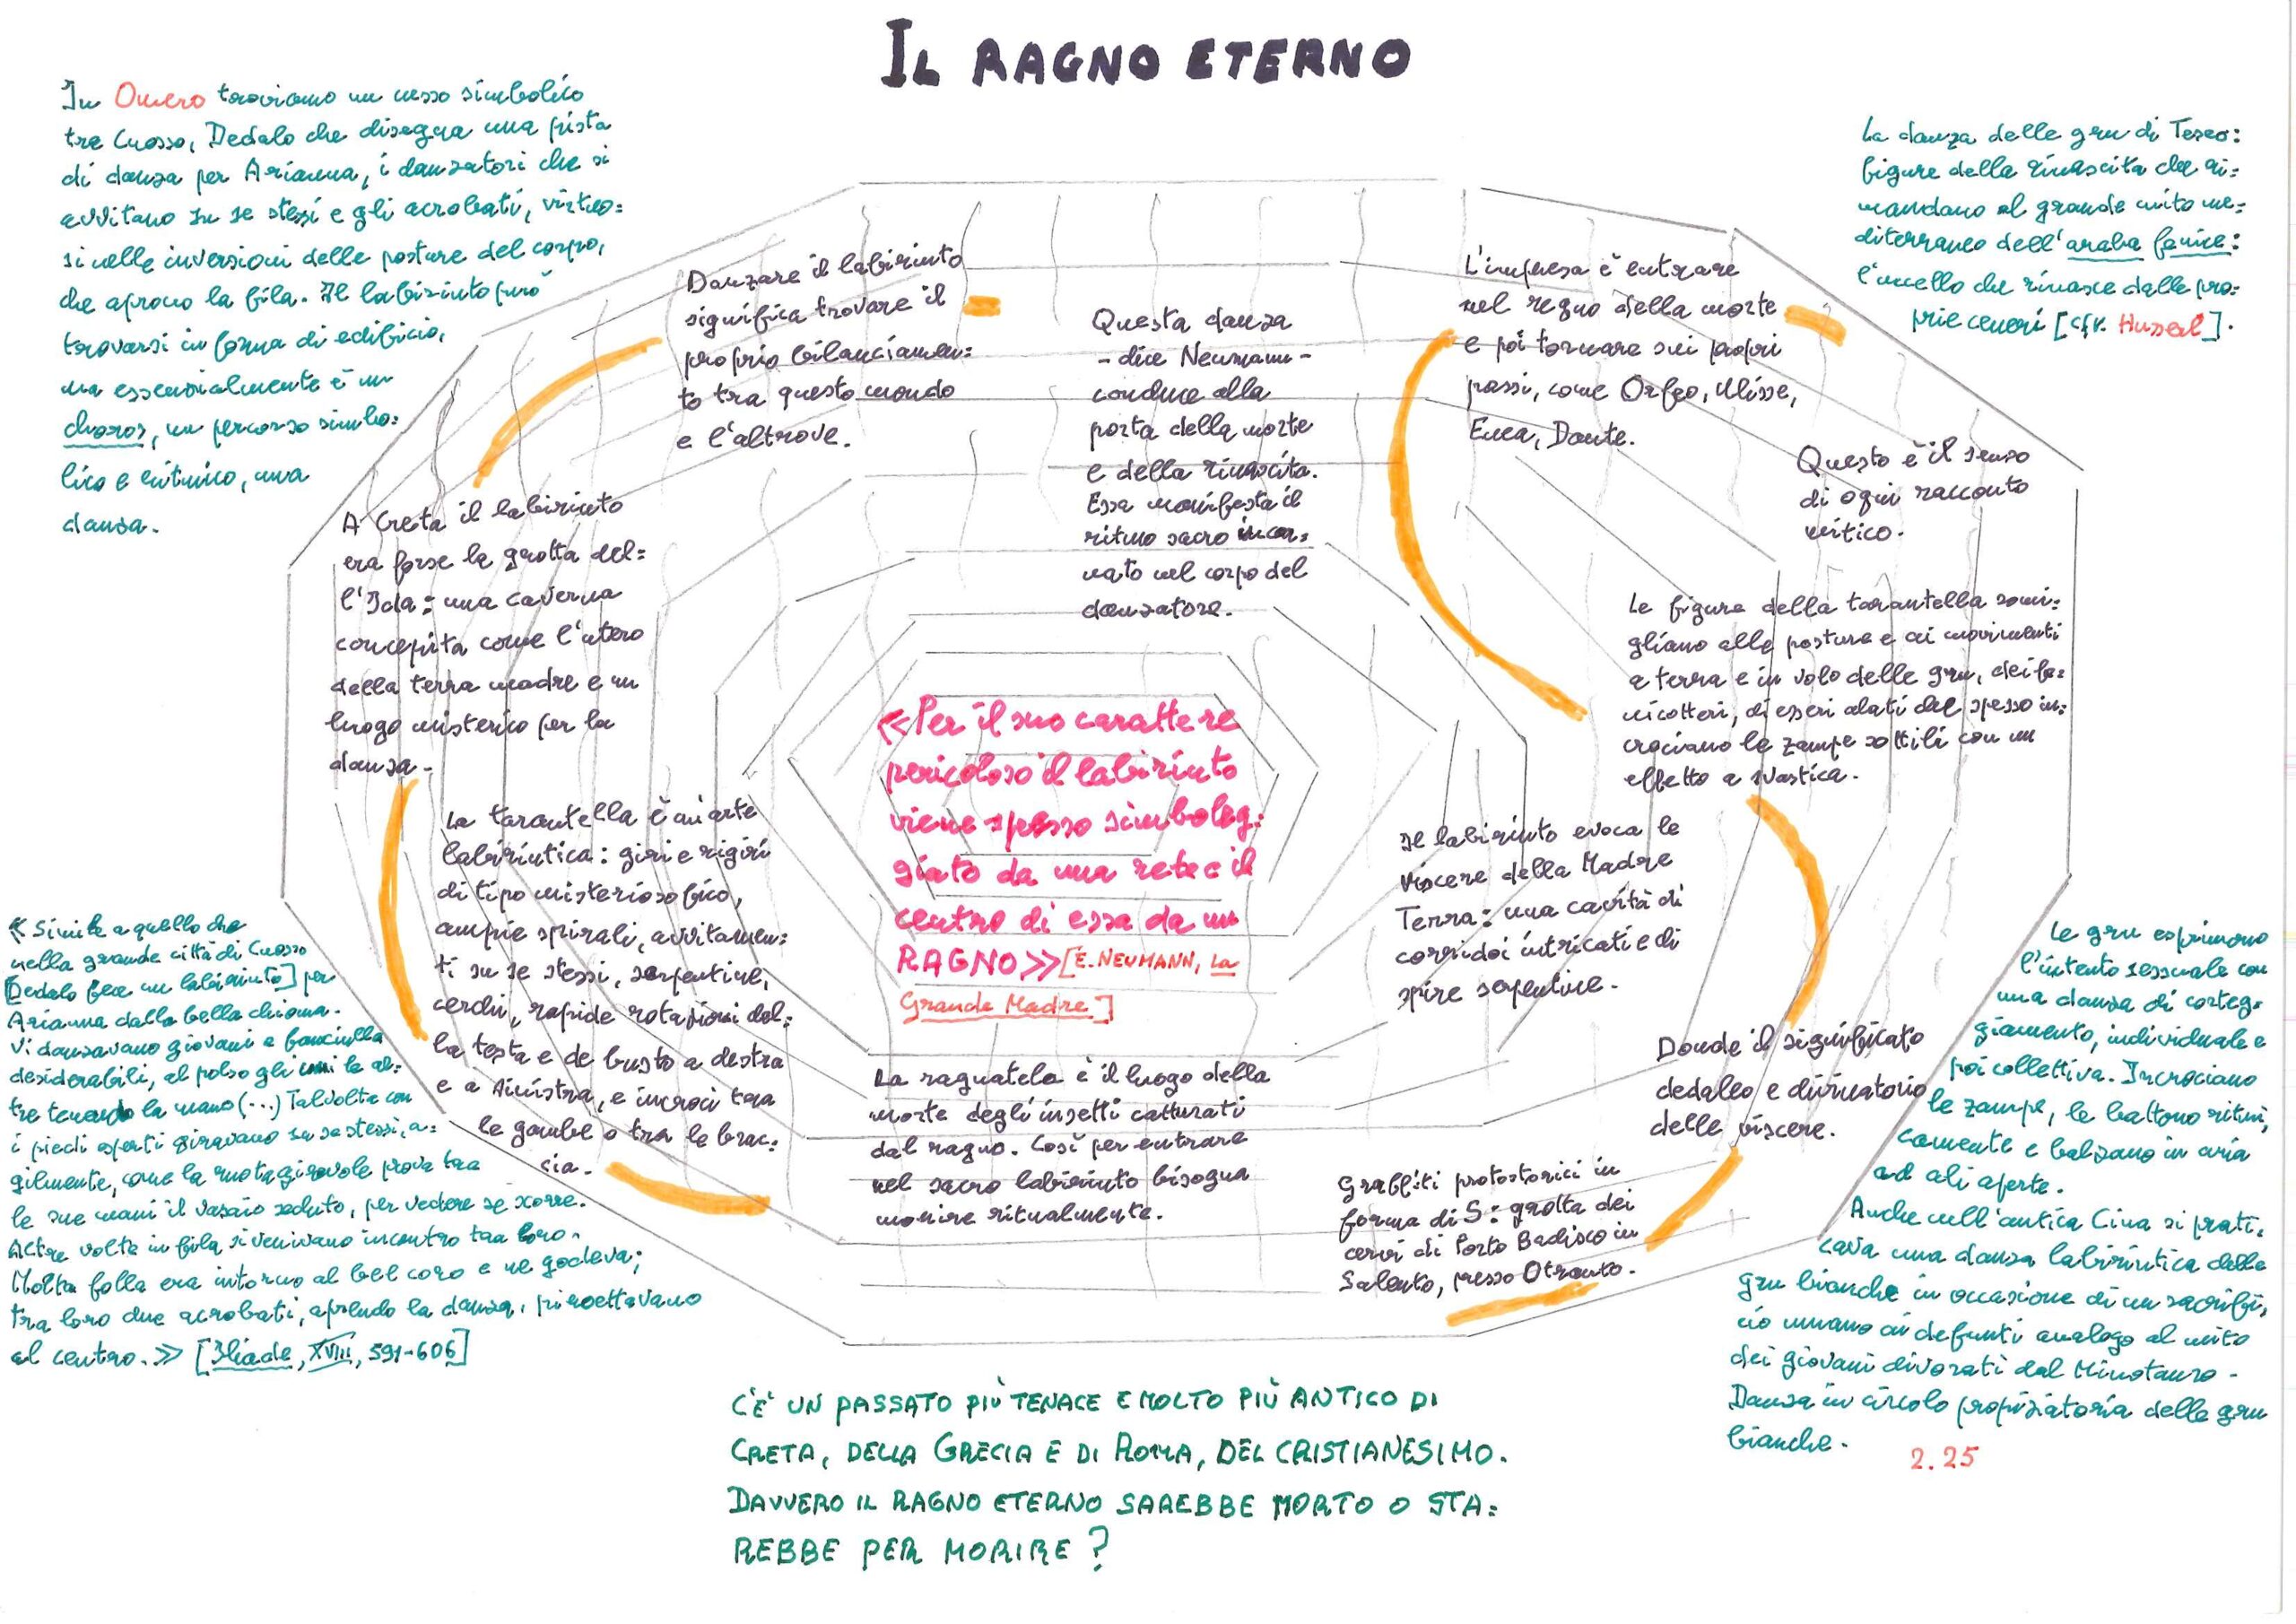 IL RAGNO ETERNO
In Omero troviamo un nesso simbolico
tra Cnosso, Dedalo che disegna una pista
di danza per Arianna, i danzatori che si
avvitano su se stessi e gli acrobati, virtuo=
si nelle inversioni delle posture del corpo,
che aprono la fila. Il labirinto può
trovarsi in forma di edificio,
ma essenzialmente è un
choros, un percorso simbo=
lico e ritmico, una
danza.
La danza delle gru di Teseo:
figure della rinascita che ri=
mandano al grande mito me=
diterraneo dell'araba fenice:
l'uccello che rinasce dalle pro=
prie ceneri [cfr. Husserl].
Danzare il labirinto
significa trovare il
proprio bilanciamen=
to tra questo mondo
e l'altrove.
Questa danza
- dice Neumann -
conduce alla
porta della morte
e della rinascita.
Essa manifesta il
ritmo sacro incar=
nato nel corpo del
danzatore.
L'impresa è entrare
nel regno della morte
e poi tornare sui propri
passi, come Orfeo, Ulisse,
Enea, Dante.
Questo è il senso
di ogni racconto
mitico.
A Creta il labirinto
era forse la grotta del=
l'Ida: una caverna
concepita come l'utero
della terra madre e un
luogo misterico per la
danza.
Le figure della tarantella somi=
gliano alle posture e ai movimenti
a terra e in volo delle gru, dei fe=
nicotteri, di esseri alati che spesso in=
crociano le zampe sottili con un
effetto a svastica.
La tarantella è un'arte
labirintica: giri e rigiri
di tipo misteriosofico,
ampie spirali, avvitamen=
ti su se stessi, serpentine,
cerchi, rapide rotazioni del=
la testa e de busto a destra
e a sinistra, e incroci tra
le gambe o tra le brac=
cia.
«Per il suo carattere
pericoloso il labirinto
viene spesso simboleg=
giato da una rete e il
centro di essa da un
RAGNO» [E. NEUMANN, La
Grande Madre]
Il labirinto evoca le
viscere della Madre
Terra: una cavità di
corridoi intricati e di
spire serpentine.
Donde il significato
dedaleo e divinatorio
delle viscere.
La ragnatela è il luogo della
morte degli insetti catturati
dal ragno. Così per entrare
nel sacro labirinto bisogna
morire ritualmente.
Graffiti protostorici in
forma di S: grotta dei
cervi di Porto Badisco in
Salento, presso Otranto.
« Simile a quello che
nella grande città di Cnosso
Dedalo fece un labirinto] per
Arianna dalla bella chioma.
Vi danzavano giovani e fanciulle
desiderabili, al polso gli uni le al=
tre tenendo la mano (...) Talvolta con
i piedi esperti giravano su se stessi, a=
gilmente, come la ruota girevole prova tra
le sue mani il vasaio seduto, per vedere se scorre.
Altre volte in fila si venivano incontro tra loro.
Molta folla era intorno al bel coro e ne godeva;
tra loro due acrobati, aprendo la danza, piroettavano
al centro.» [Iliade, XVIII, 591-606]
Le gru esprimono
l'intento sessuale con
una danza di corteg=
giamento, individuale e
poi collettiva. Incrociano
le zampe, le battono ritmi=
camente e balzano in aria
ad ali aperte.
Anche nell'antica Cina si prati=
cava una danza labirintica delle
gru bianche in occasione di un sacrifi=
cio umano ai defunti analogo al mito
dei giovani divorati dal Minotauro.
Danza in circolo propiziatoria delle gru
bianche.
2.25
C'È UN PASSATO PIÙ TENACE E MOLTO PIÙ ANTICO DI
CRETA, DELLA GRECIA E DI ROMA, DEL CRISTIANESIMO.
DAVVERO IL RAGNO ETERNO SAREBBE MORTO O STA=
REBBE PER MORIRE?